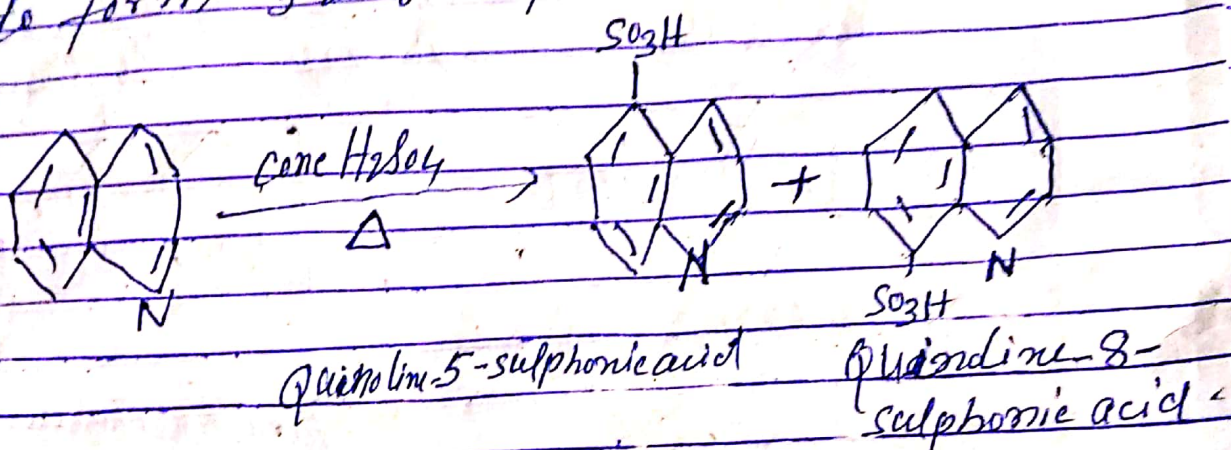 to form
SO3H
conc H2SO4
Δ
+
N
N
N
SO3H
Quinoline-5-sulphonic acid
Quindine-8-
sulphonic acid.